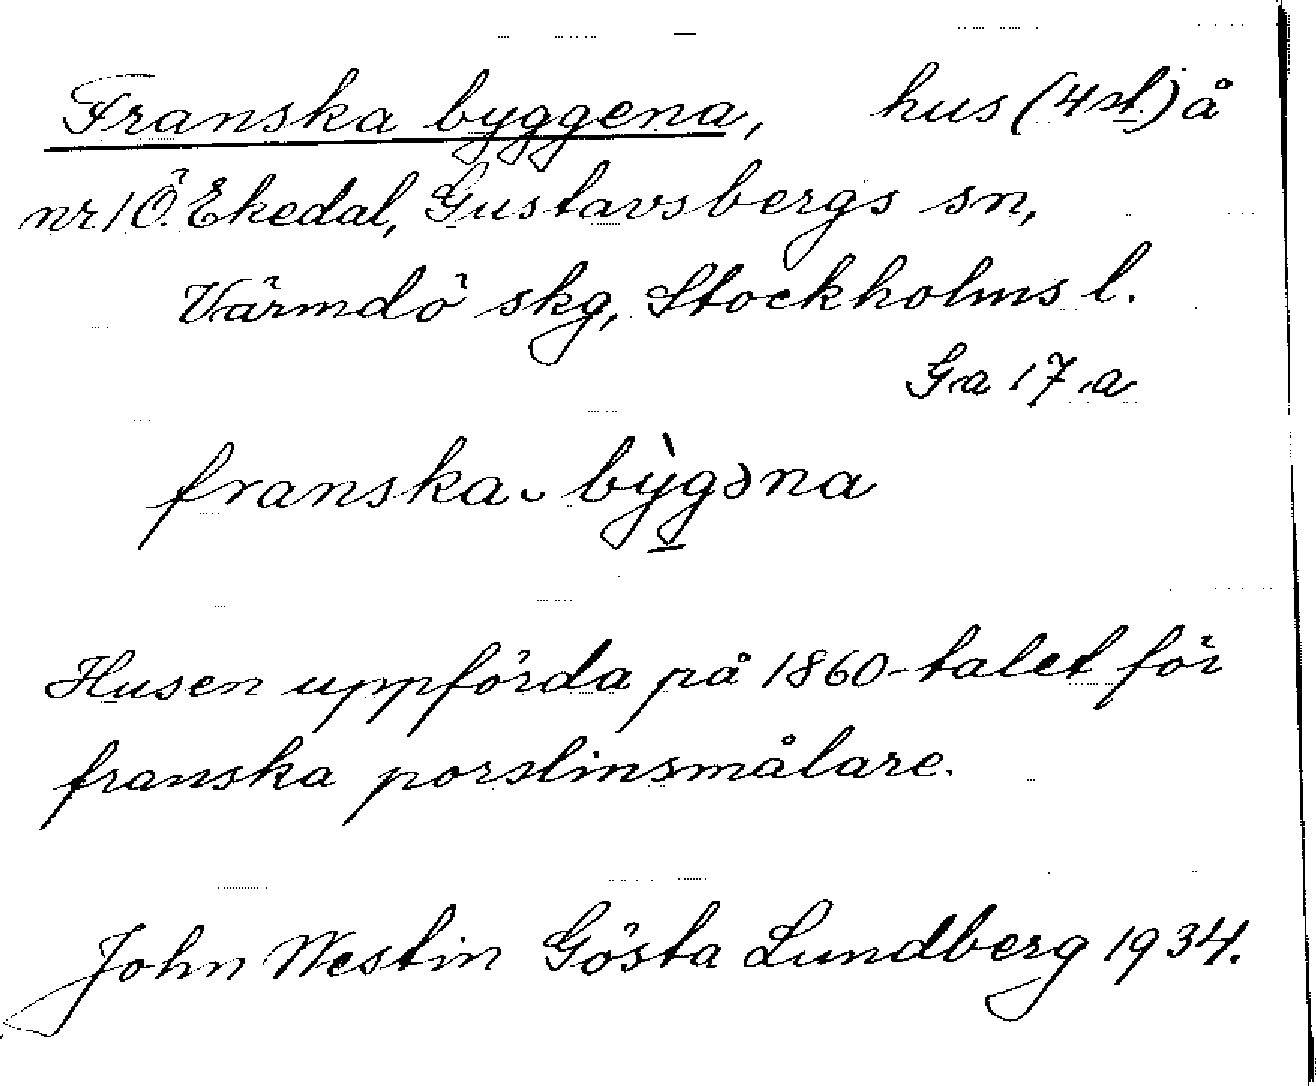 Franska byggena, hus (4 st.) å
nr 1 Ö. Ekedal, Gustavsbergs sn,
Värmdö skg, Stockholms l.
Ga 17 a
franska ᴗ bỳgəna
Husen uppförda på 1860-talet för
franska porslinsmålare.
John Westin Gösta Lundberg 1934.